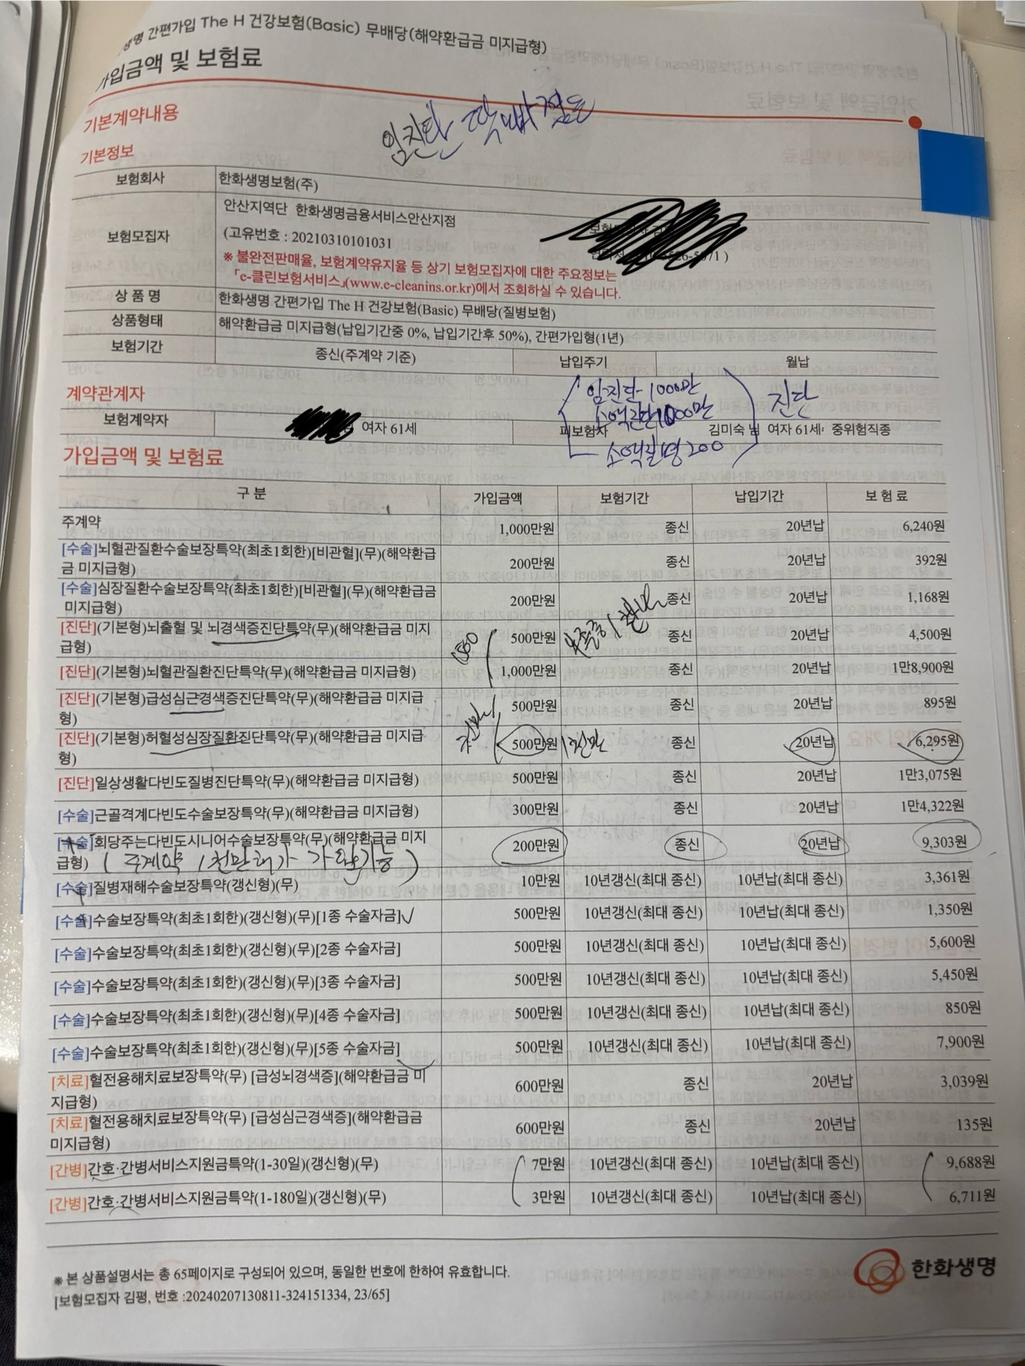 생명 간편가입 The H 건강보험(Basic) 무배당(해약환급금 미지급형)
가입금액 및 보험료
기본계약내용
기본정보
보험회사 한화생명보험(주)
보험모집자 안산지역단 한화생명금융서비스안산지점
(고유번호 : 20210310101031
※ 불완전판매율, 보험계약유지율 등 상기 보험모집자에 대한 주요정보는
「e-클린보험서비스」(www.e-cleanins.or.kr)에서 조회하실 수 있습니다.
상 품 명 한화생명 간편가입 The H 건강보험(Basic) 무배당(질병보험)
상품형태 해약환급금 미지급형(납입기간중 0%, 납입기간후 50%), 간편가입형(1년)
보험기간 종신(주계약 기준) 납입주기 월납
암진단-1000만
진단
계약관계자
보험계약자 여자 61세 피보험자 김미숙 님 여자 61세 중위험직종
200
가입금액 및 보험료
구 분 가입금액 보험기간 납입기간 보 험 료
주계약 1,000만원 종신 20년납 6,240원
[수술]뇌혈관질환수술보장특약(최초1회한)[비관혈](무)(해약환급
금 미지급형) 200만원 종신 20년납 392원
[수술]심장질환수술보장특약(최초1회한)[비관혈](무)(해약환급금
미지급형) 200만원 종신 20년납 1,168원
[진단](기본형)뇌출혈 및 뇌경색증진단특약(무)(해약환급금 미지급
형) 500만원 종신 20년납 4,500원
[진단](기본형)뇌혈관질환진단특약(무)(해약환급금 미지급형) 1,000만원 종신 20년납 1만8,900원
[진단](기본형)급성심근경색증진단특약(무)(해약환급금 미지급
형) 500만원 종신 20년납 895원
[진단](기본형)허혈성심장질환진단특약(무)(해약환급금 미지급
형) 500만원 1천만 종신 20년납 6,295원
[진단]일상생활다빈도질병진단특약(무)(해약환급금 미지급형) 500만원 종신 20년납 1만3,075원
[수술]근골격계다빈도수술보장특약(무)(해약환급금 미지급형) 300만원 종신 20년납 1만4,322원
[수술]회당주는다빈도시니어수술보장특약(무)(해약환급금 미지
급형) (주계약 1천만 가능) 200만원 종신 20년납 9,303원
[수술]질병재해수술보장특약(갱신형)(무) 10만원 10년갱신(최대 종신) 10년납(최대 종신) 3,361원
[수술]수술보장특약(최초1회한)(갱신형)(무)[1종 수술자금] 500만원 10년갱신(최대 종신) 10년납(최대 종신) 1,350원
[수술]수술보장특약(최초1회한)(갱신형)(무)[2종 수술자금] 500만원 10년갱신(최대 종신) 10년납(최대 종신) 5,600원
[수술]수술보장특약(최초1회한)(갱신형)(무)[3종 수술자금] 500만원 10년갱신(최대 종신) 10년납(최대 종신) 5,450원
[수술]수술보장특약(최초1회한)(갱신형)(무)[4종 수술자금] 500만원 10년갱신(최대 종신) 10년납(최대 종신) 850원
[수술]수술보장특약(최초1회한)(갱신형)(무)[5종 수술자금] 500만원 10년갱신(최대 종신) 10년납(최대 종신) 7,900원
[치료]혈전용해치료보장특약(무) [급성뇌경색증](해약환급금 미
지급형) 600만원 종신 20년납 3,039원
[치료]혈전용해치료보장특약(무) [급성심근경색증](해약환급금
미지급형) 600만원 종신 20년납 135원
[간병]간호·간병서비스지원금특약(1-30일)(갱신형)(무) 7만원 10년갱신(최대 종신) 10년납(최대 종신) 9,688원
[간병]간호·간병서비스지원금특약(1-180일)(갱신형)(무) 3만원 10년갱신(최대 종신) 10년납(최대 종신) 6,711원
※ 본 상품설명서는 총 65페이지로 구성되어 있으며, 동일한 번호에 한하여 유효합니다.
[보험모집자 김평, 번호 :20240207130811-324151334, 23/65]
한화생명